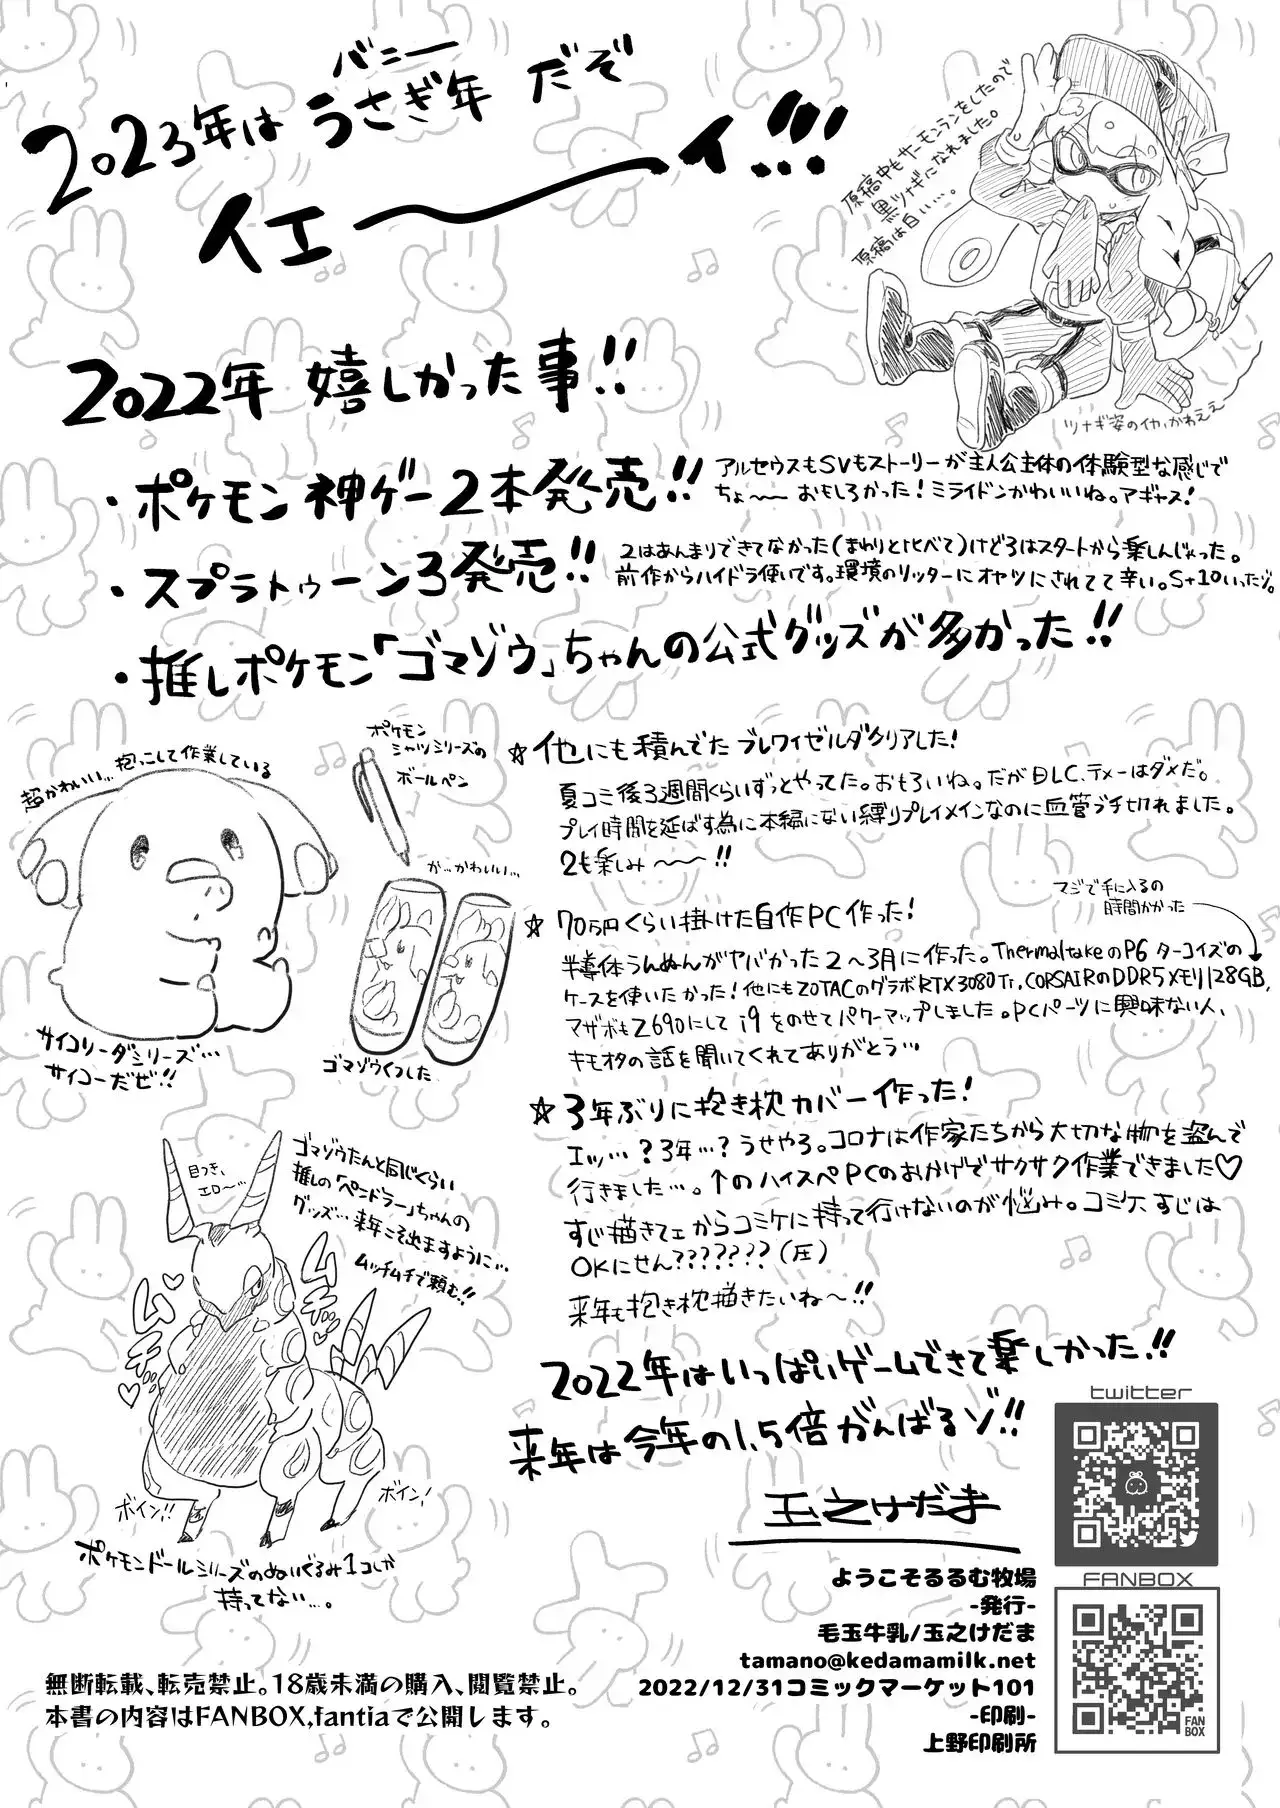 バニー
2023年は うさぎ年 だぞ
イエーーーイ!!!
原稿中もサーモンランをしたので
黒ツナギになれました。
原稿は白い…。
ツナギ姿のイカ、かわええ
2022年 嬉しかった事!!
・ポケモン神ゲー2本発売!!
アルセウスもSVもストーリーが主人公主体の体験型な感じで
ちょ〜〜おもしろかった!ミライドンかわいいね。アギャス!
・スプラトゥーン3発売!!
2はあんまりできてなかった(まわりと比べて)けど3はスタートから楽しんじゃった。
前作からハイドラ使いです。環境のリッターにオヤツにされてて辛い。S+10いったゾ。
・推しポケモン「ゴマゾウ」ちゃんの公式グッズが多かった!!
超かわいい…抱っこして作業している
ポケモン
シャツシリーズの
ボールペン
が…かわいい…
サイコソーダシリーズ…
サイコーだぜ!!
ゴマゾウくつした
☆他にも積んでたブレワイゼルダクリアした!
夏コミ後3週間くらいずっとやってた。おもろいね。だがDLC、テメーはダメだ。
プレイ時間を延ばす為に本編にない縛りプレイメインなのに血管ブチ切れました。
2も楽しみ〜〜!!
マジで手に入るの
時間かかった
☆70万円くらい掛けた自作PC作った!
半導体うんぬんがヤバかった2〜3月に作った。ThermaltakeのP6 ターコイズの
ケースを使いたかった!他にもZOTACのグラボRTX3080Ti、CORSAIRのDDR5メモリ128GB、
マザボもZ690にして i9をのせてパワーマップしました。PCパーツに興味ない人、
キモオタの話を聞いてくれてありがとう…
☆3年ぶりに抱き枕カバー作った!
エッ…?3年…?うせやろ。コロナは作家たちから大切な物を盗んで
行きました…。↑のハイスペPCのおかげでサクサク作業できました♡
すじ描きてェからコミケに持って行けないのが悩み。コミケ、すじは
OKにせん???????(圧)
来年も抱き枕描きたいね〜!!
目つき、
エロ〜…
ゴマゾウたんと同じくらい
推しの「ペンドラー」ちゃんの
グッズ…来年こそ出ますように…
ムッチムチで頼む!!
ムチッ♡
ムチッ♡
ボイン!!
ボイン!
ポケモンドールシリーズのぬいぐるみ1コしか
持ってない…。
2022年はいっぱいゲームできて楽しかった!!
来年は今年の1.5倍がんばるゾ!!
玉之けだま
twitter
FANBOX
FAN
BOX
ようこそるるむ牧場
-発行-
毛玉牛乳/玉之けだま
tamano@kedamamilk.net
2022/12/31コミックマーケット101
-印刷-
上野印刷所
無断転載、転売禁止。18歳未満の購入、閲覧禁止。
本書の内容はFANBOX,fantiaで公開します。